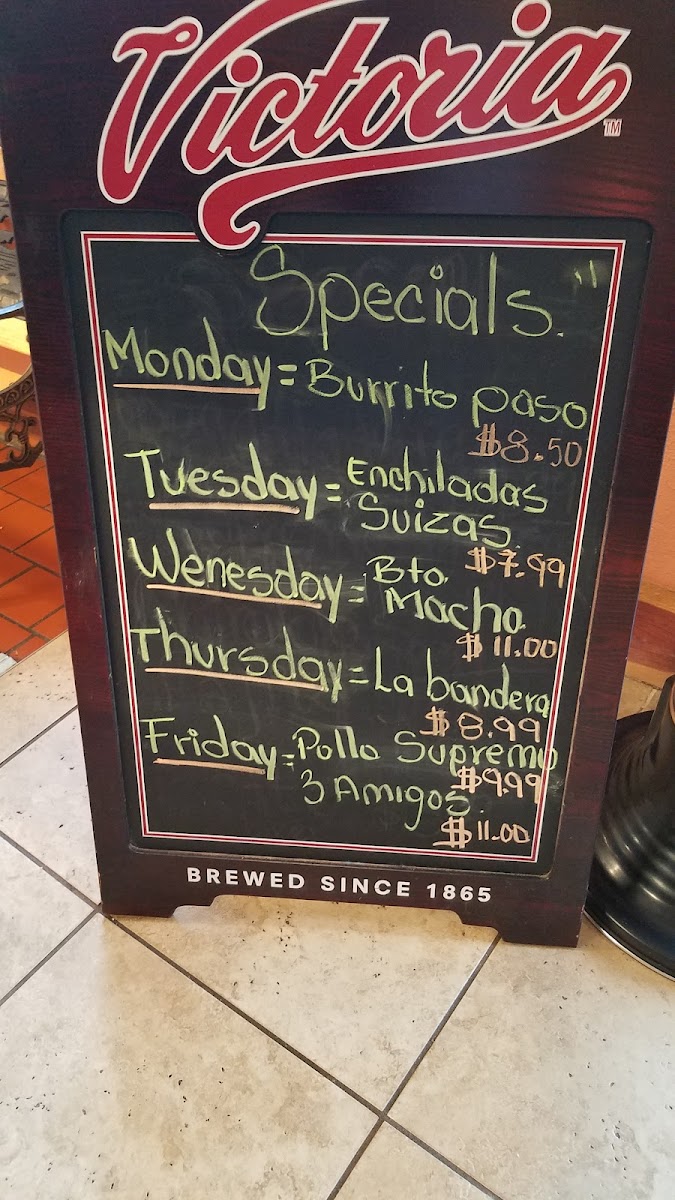 Victoria
TM
Specials."
Monday = Burrito paso
$8.50
Tuesday = Enchiladas
Suizas
$7.99
Wenesday = Bto.
Macho
$11.00
Thursday = La bandera
$8.99
Friday = Pollo Supremo
$9.99
3 Amigos
$11.00
BREWED SINCE 1865